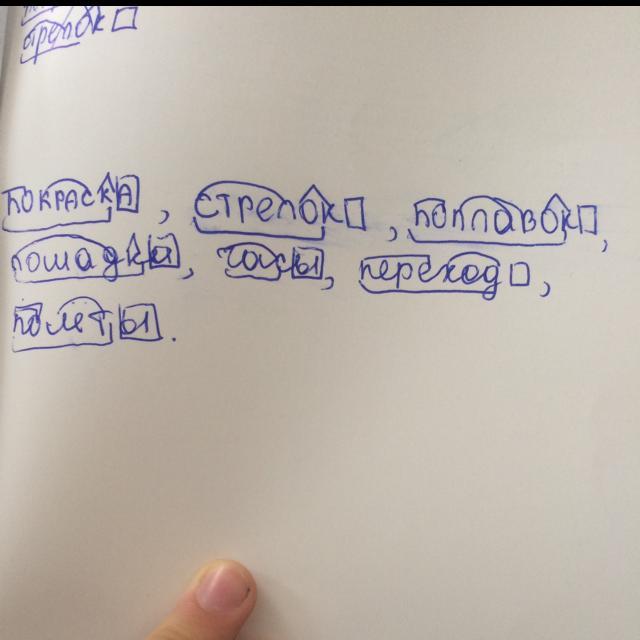 стрелок
покраска, стрелок, поплавок,
лошадка, часы, переход,
полёты.